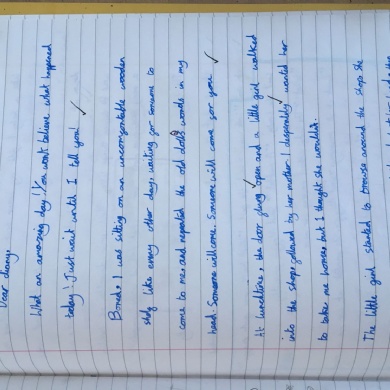 Dear diary,
What an amazing day! You won't believe what happened
today! Just wait until I tell you!
Bored, I was sitting on an uncomfortable wooden
shelf like every other day, waiting for someone to
come to me and repeated the old doll's words in my
head. Someone will come. Someone will come for you.
At lunchtime, the door flung open and a little girl walked
into the shop followed by her mother. I desperatly wanted her
to take me home, but I thought she wouldn't.
The little girl started to browse around the shop. She